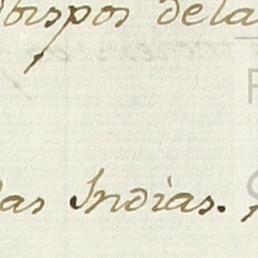 obispos de la
las Indias.